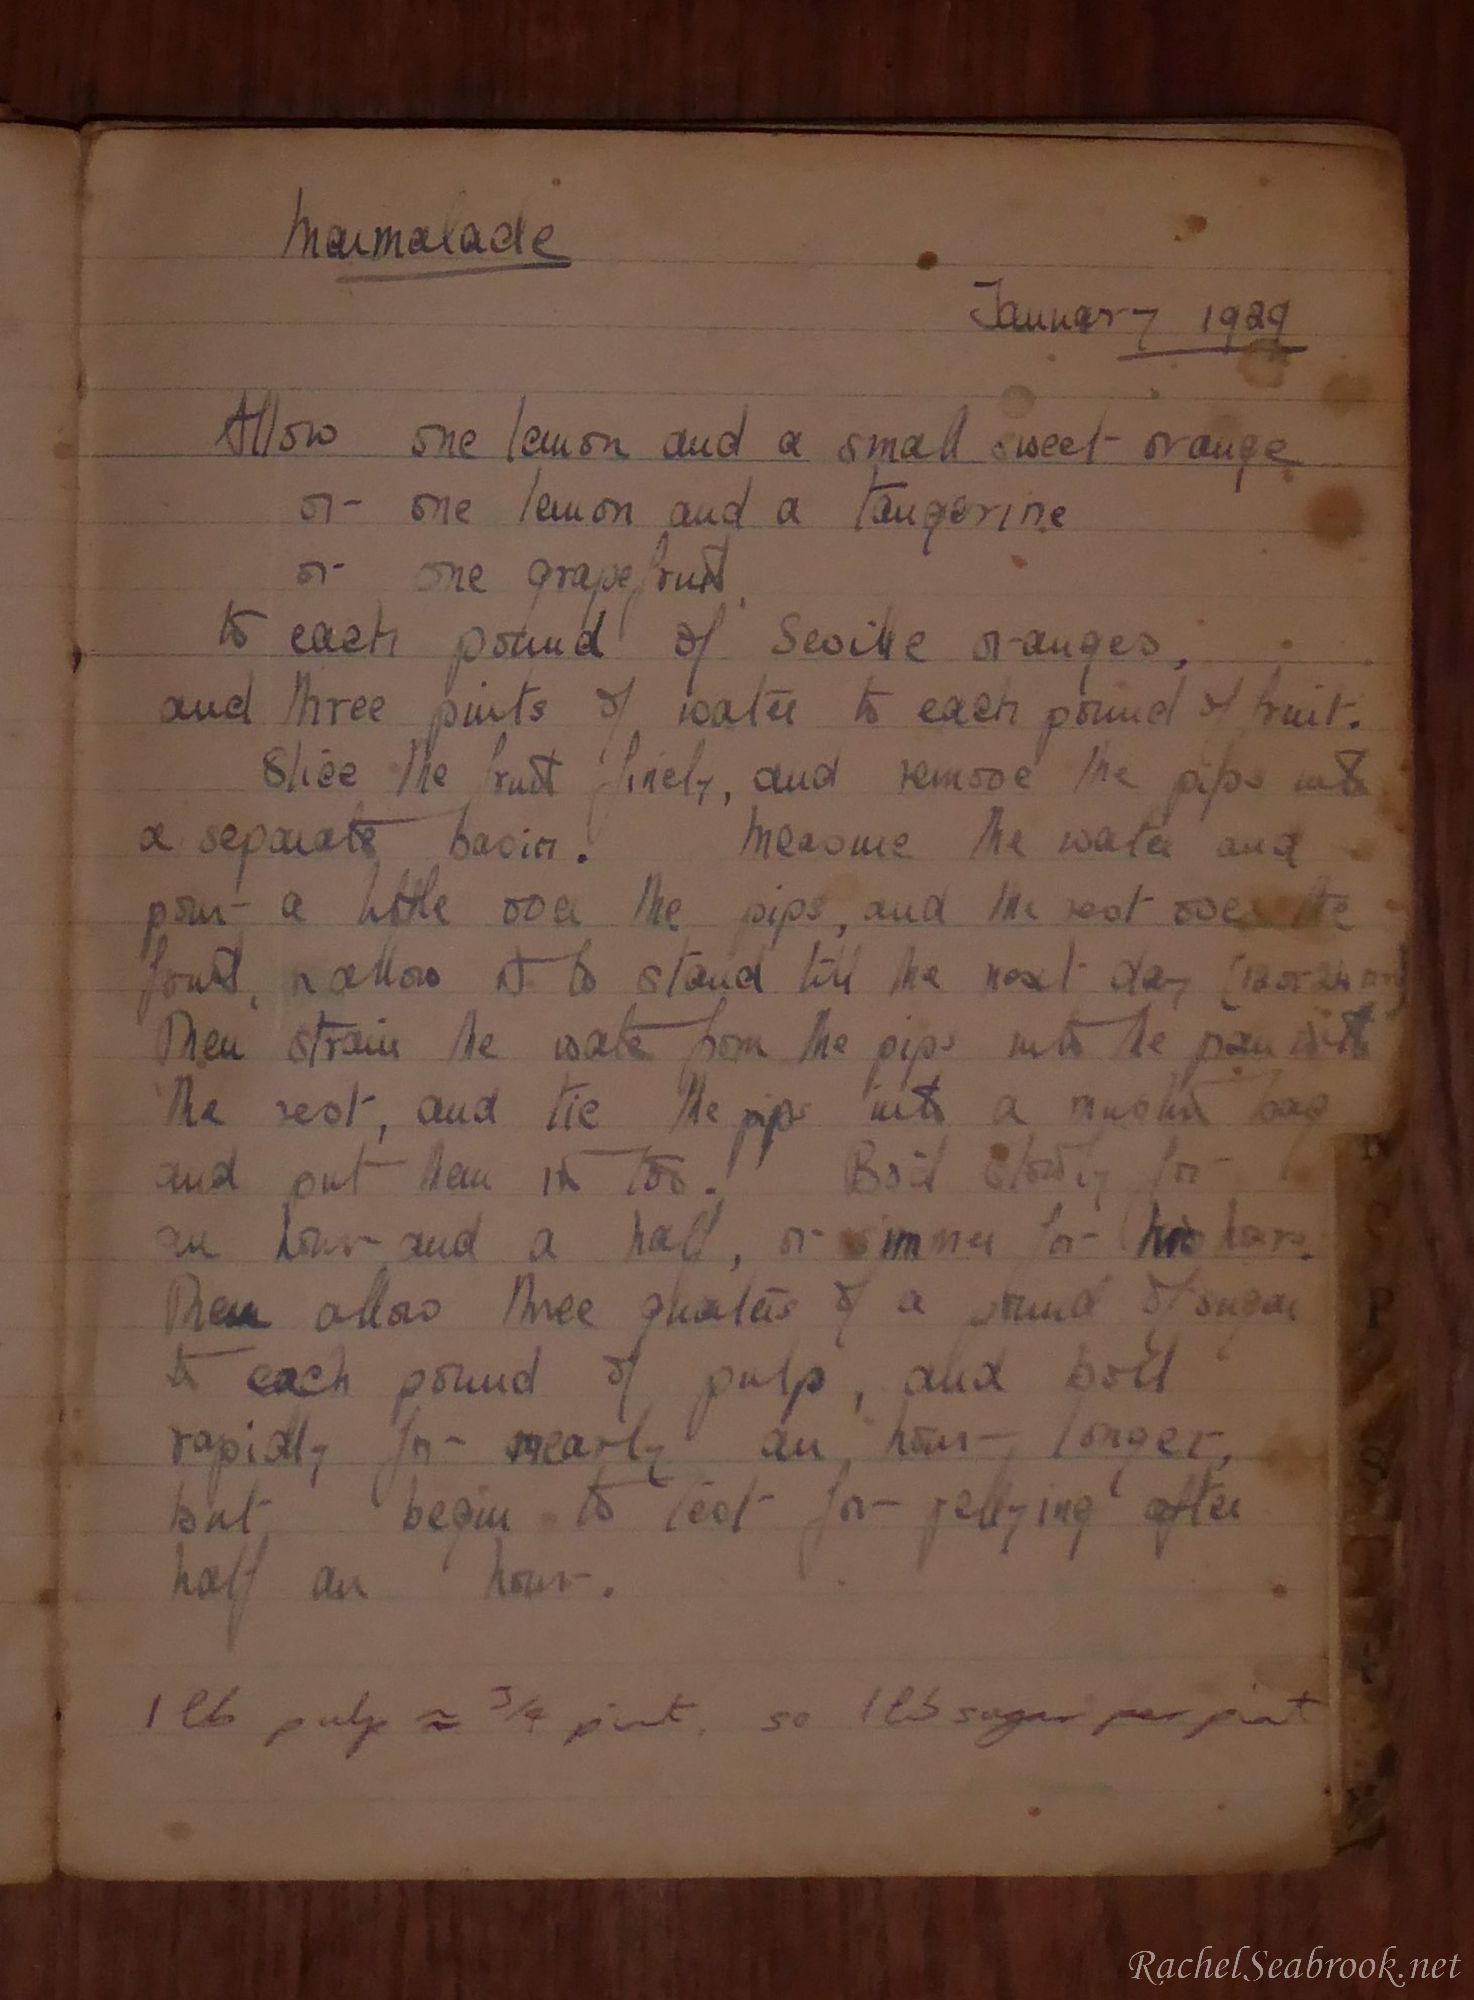 Marmalade
January 1929
Allow one lemon and a small sweet orange
or one lemon and a tangerine
or one grapefruit,
to each pound of Seville oranges,
and three pints of water to each pound of fruit.
Slice the fruit finely, and remove the pips into
a separate basin. Measure the water and
pour a little over the pips, and the rest over the
fruit, & allow it to stand till the next day (12 or 24 hrs)
Then strain the water from the pips into the pan with
the rest, and tie the pips into a muslin bag
and put them in too. Boil slowly for
an hour and a half, or simmer for two hours.
Then allow three quarters of a pound of sugar
to each pound of pulp, and boil
rapidly for nearly an hour longer,
but begin to test for jellying after
half an hour.
1 lb pulp ≈ 3/4 pint, so 1 lb sugar per pint
RachelSeabrook.net